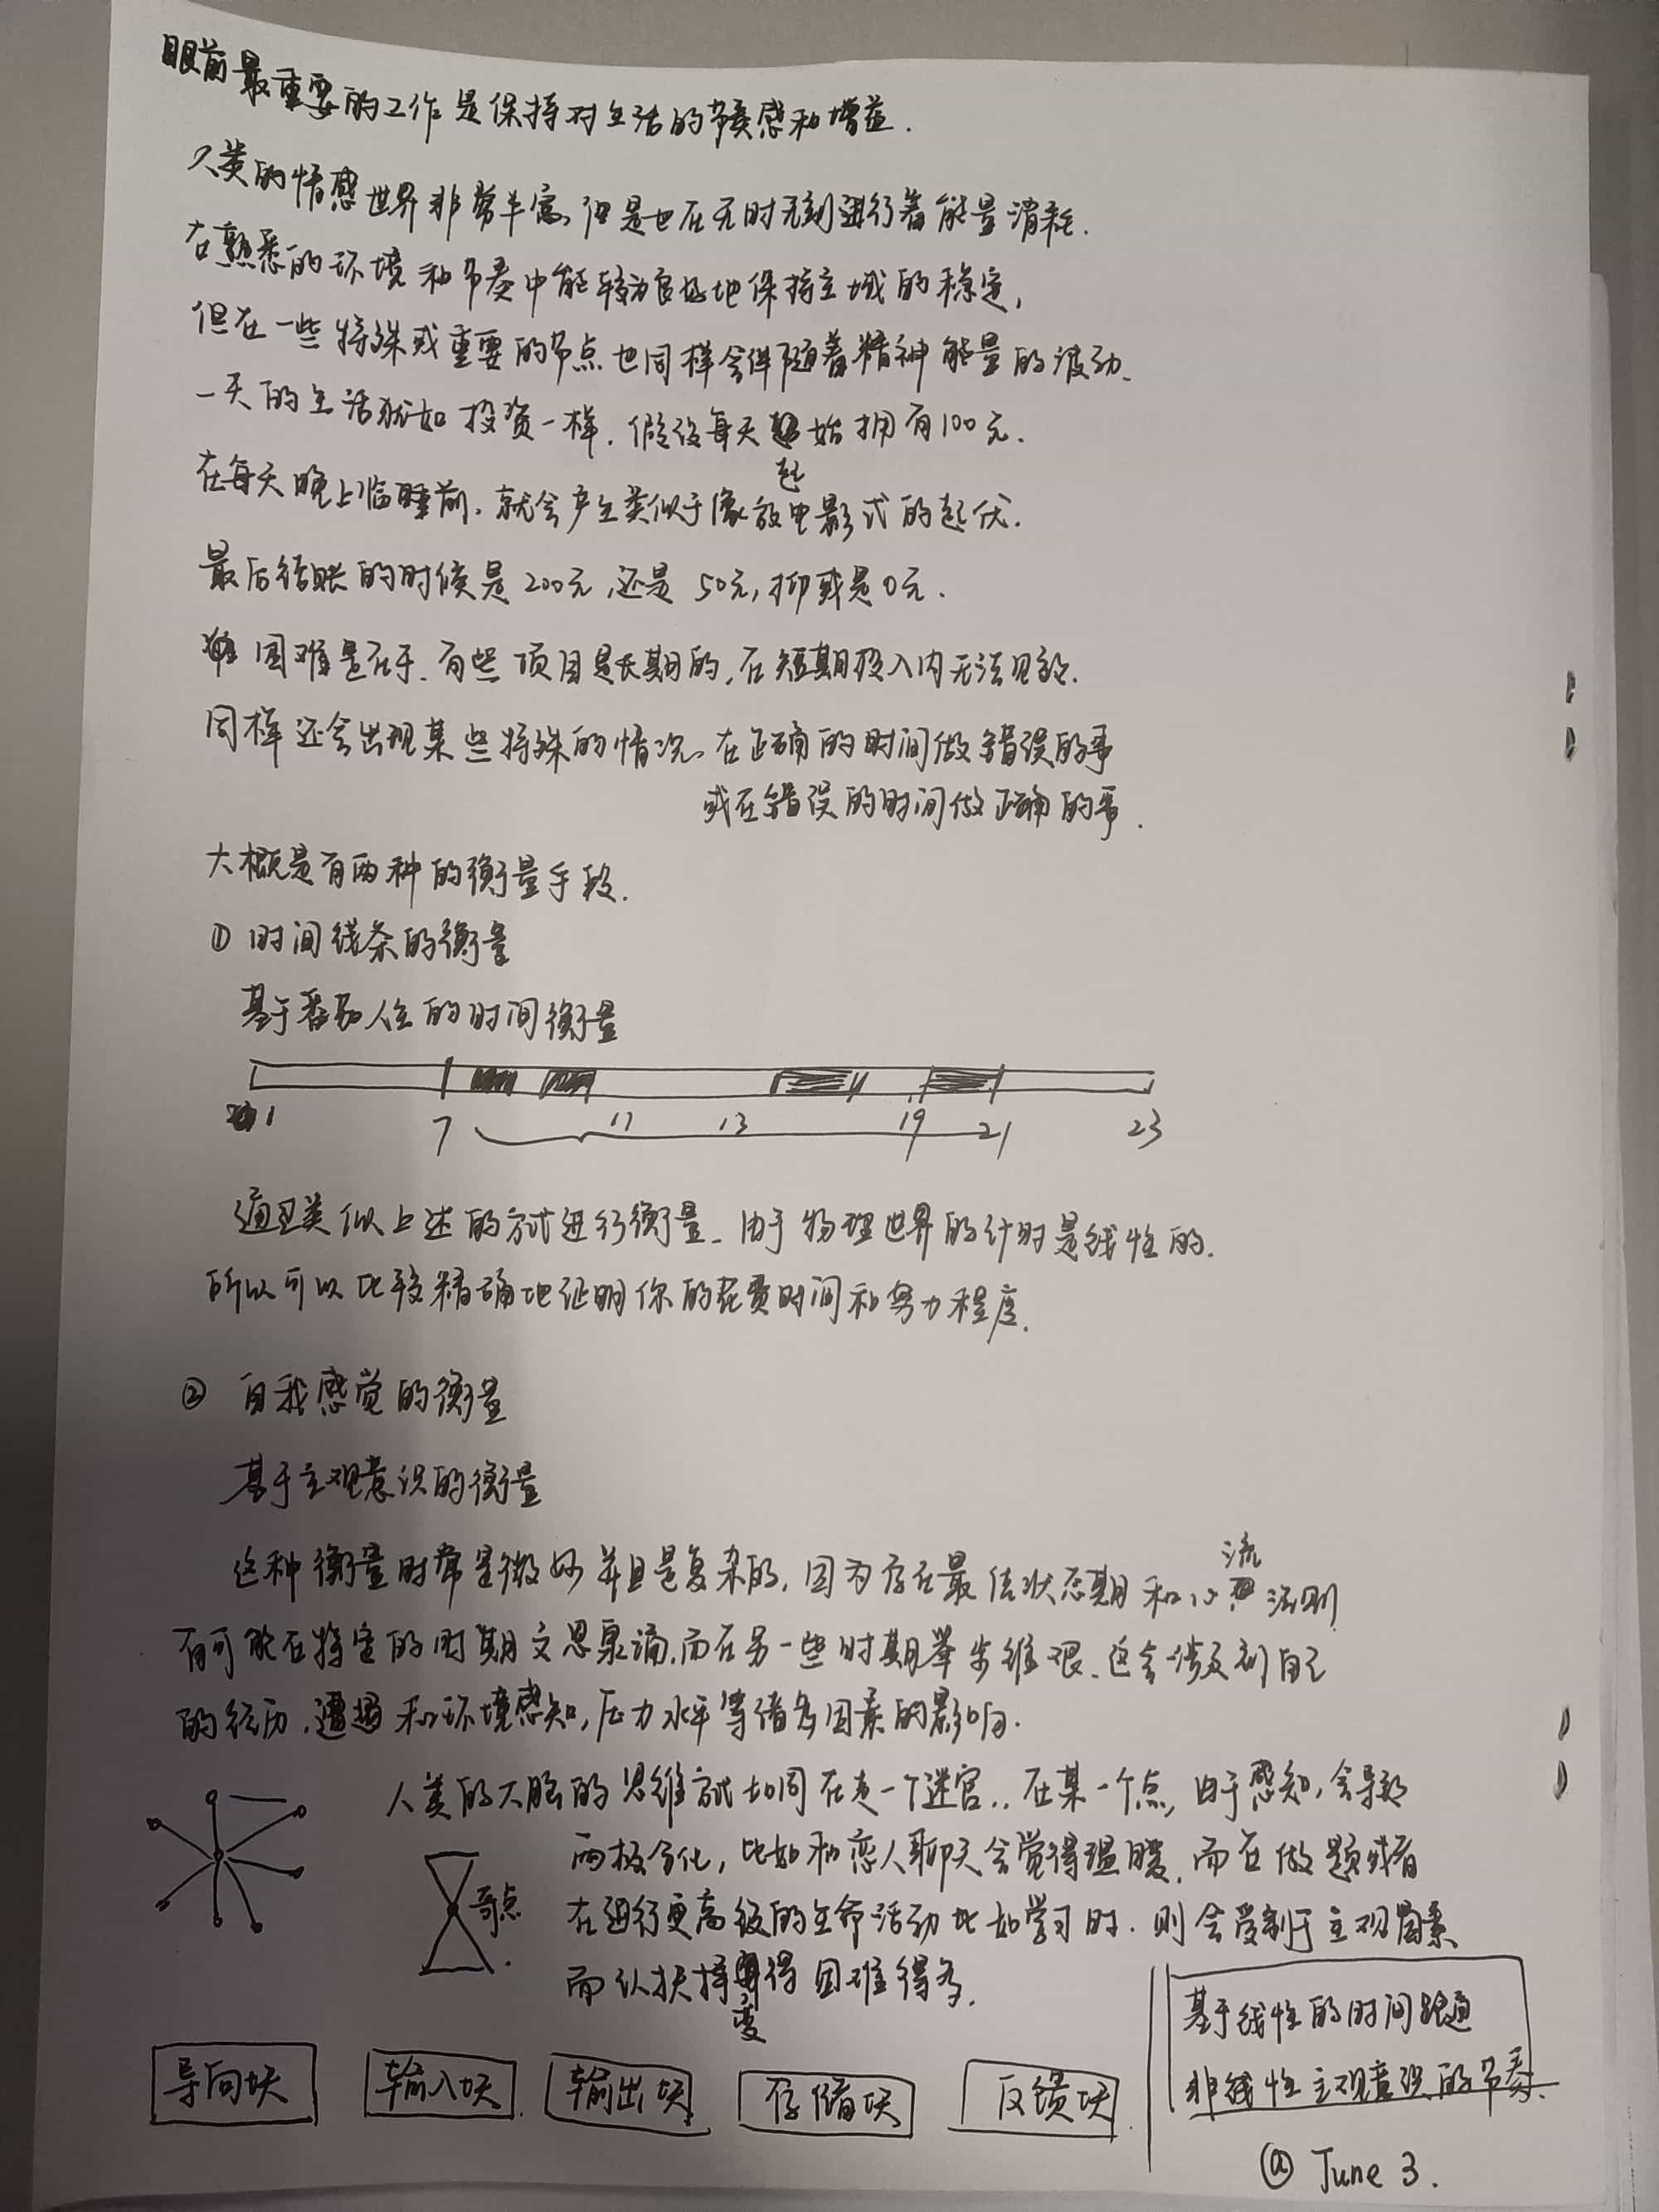 眼前最重要的工作是保持对生活的节奏感和增益.
人类的情感世界非常丰富,但是也在无时无刻进行着能量消耗.
在熟悉的环境和节奏中能较为良好地保持主域的稳定,
但在一些特殊或重要的节点也同样会伴随着精神能量的波动.
一天的生活犹如投资一样.假设每天起始拥有100元.
在每天晚上临睡前.就会产生类似于像放电影式的起伏.
最后结账的时候是200元,还是50元,抑或是0元.
困难是在于.有些项目是长期的,在短期投入内无法见效.
同样还会出现某些特殊的情况、在正确的时间做错误的事
或在错误的时间做正确的事.
大概是有两种的衡量手段.
① 时间线条的衡量
基于番茄人生的时间衡量
1 7 11 13 19 21 23
通过类似上述的方式进行衡量.由于物理世界的计时是线性的.
所以可以比较精确地证明你的花费时间和努力程度.
② 自我感觉的衡量
基于主观意识的衡量
这种衡量时常是微妙并且是复杂的,因为存在最佳状态期和心流法则
有可能在特定的时期文思泉涌.而在另一些时期举步维艰、这会涉及到自己
的经历,遭遇和环境感知,压力水平等诸多因素的影响.
人类的大脑的思维就如同在走一个迷宫..在某一个点,由于感知,会导致
两极分化,比如和恋人聊天会觉得温暖.而在做题或者
奇点
在进行更高级的生命活动比如学习时.则会受制于主观因素
而从抉择变得困难得多.
基于线性的时间跟随
非线性主观意识的节奏.
导向块 输入块 输出块 存储块 反馈块
@ June 3.